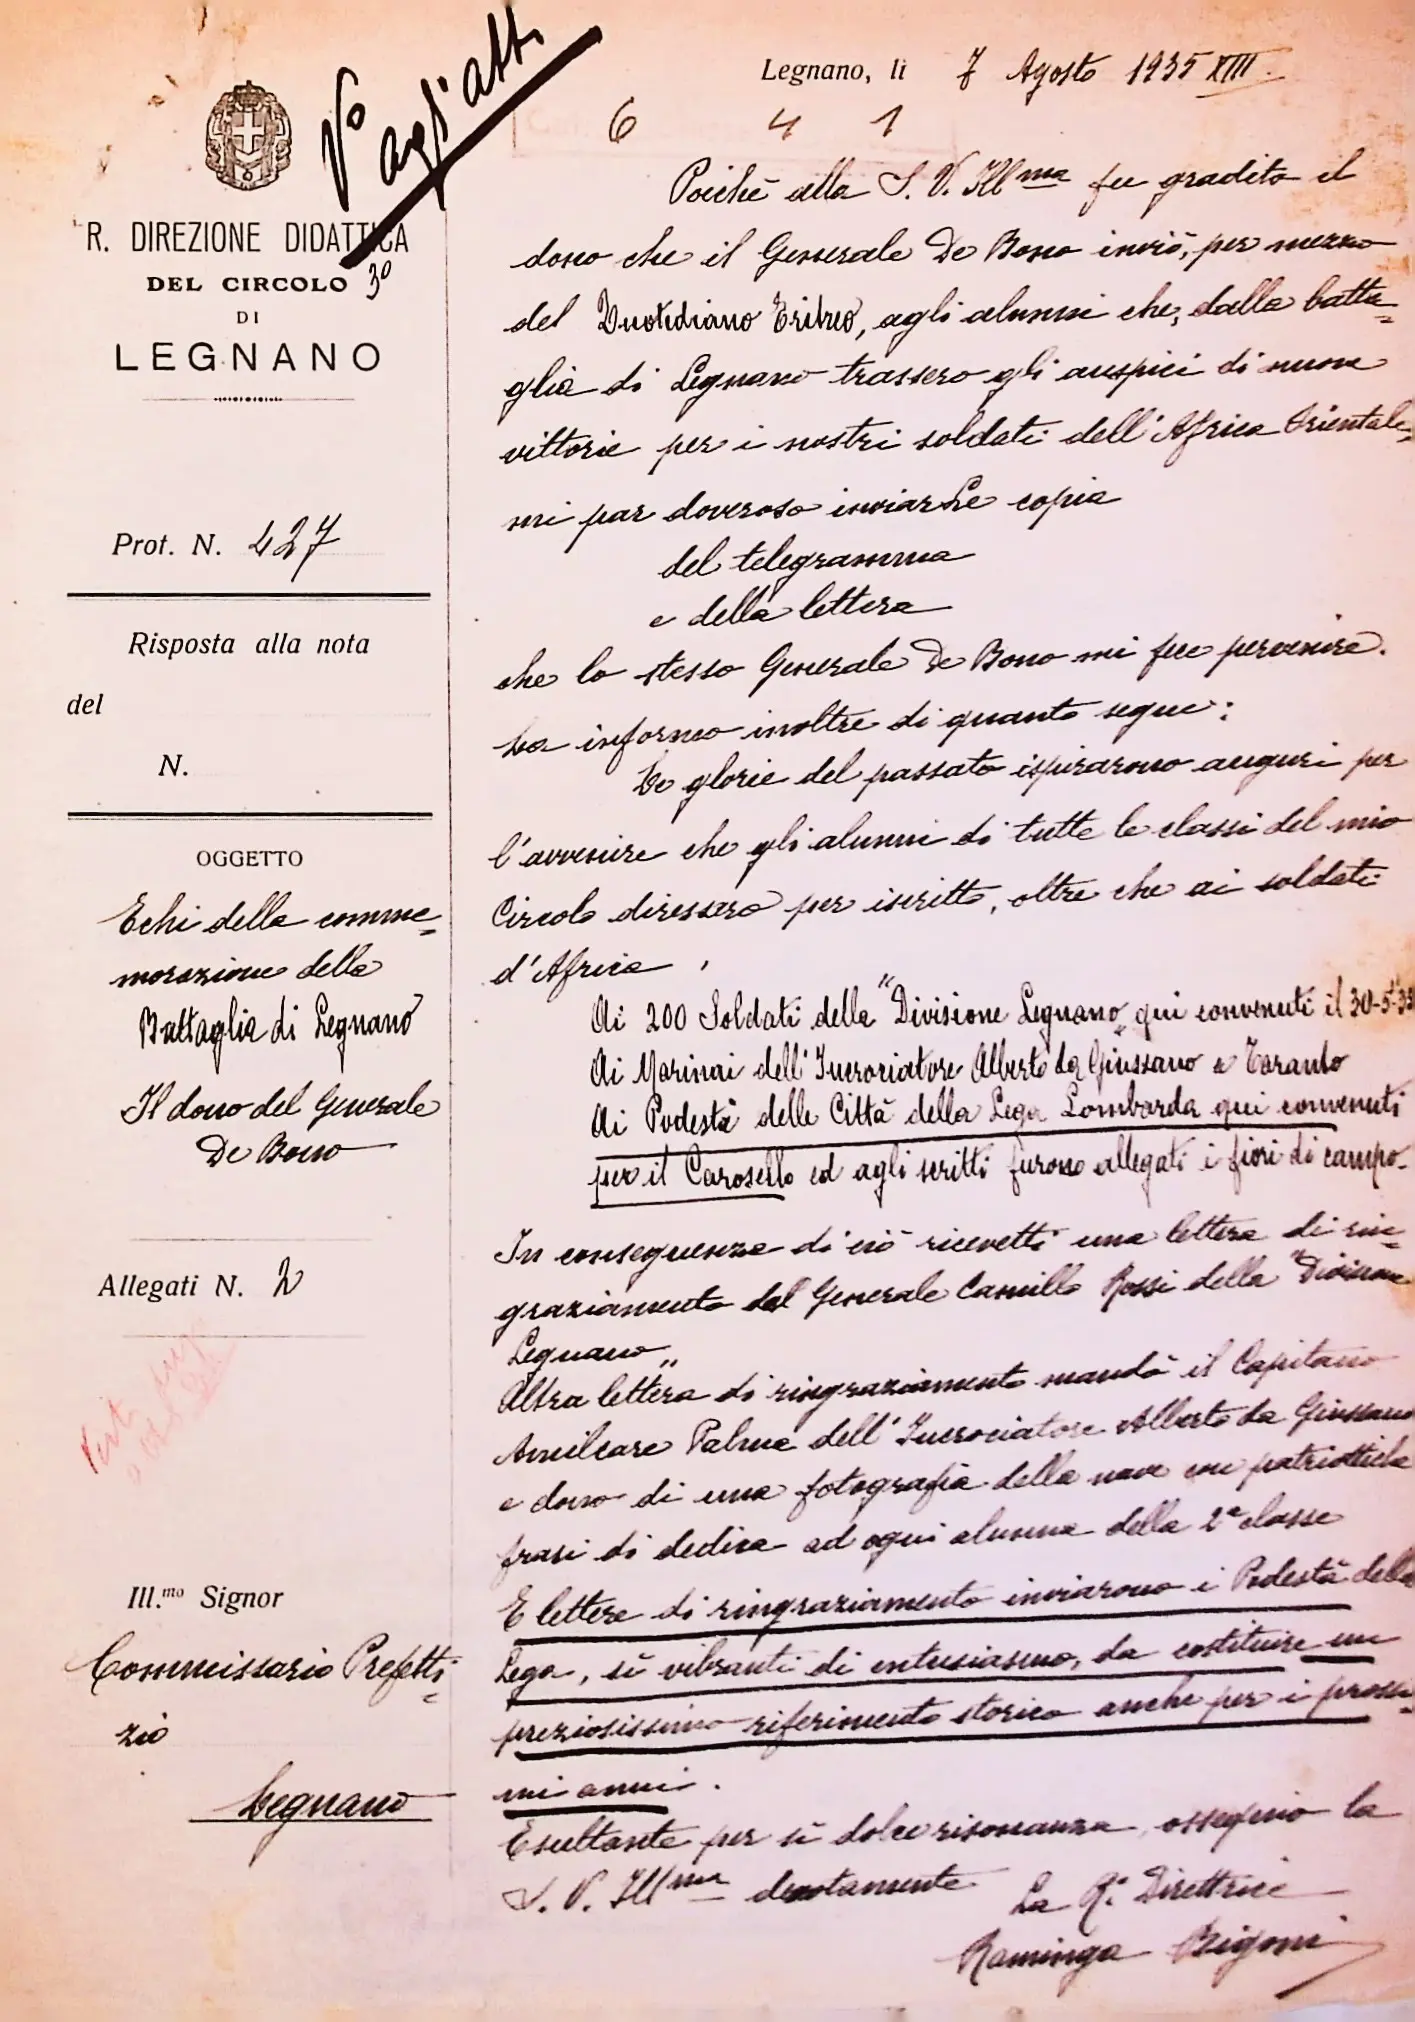 Legnano, li 7 Agosto 1935 XIII.
Vo agli atti
6 4 1
R. DIREZIONE DIDATTICA
DEL CIRCOLO 3º
DI
LEGNANO
Prot. N. 427
Risposta alla nota
del
N.
OGGETTO
Echi della comme=
morazione della
Battaglia di Legnano
Il dono del Generale
De Bono
Allegati N. 2
Ill.mo Signor
Commissario Prefetti=
zio
Legnano
Poichè alla S. V. Ill ma fu gradito il
dono che il Generale De Bono inviò, per mezzo
del Quotidiano Eritreo, agli alunni che, dalla batta=
glia di Legnano trassero gli auspici di nuove
vittorie per i nostri soldati dell'Africa Orientale,
mi par doveroso inviarLe copia
del telegramma
e della lettera
che lo stesso Generale De Bono mi fece pervenire.
La informo inoltre di quanto segue:
Le glorie del passato ispirarono auguri per
l'avvenire che gli alunni di tutte le classi del mio
Circolo diressero per iscritto, oltre che ai soldati
d'Africa,
Ai 200 Soldati della "Divisione Legnano" qui convenuti il 30-5-35
Ai Marinai dell'Incrociatore Alberto da Giussano a Taranto
Ai Podestà delle Città della Lega Lombarda qui convenuti
per il Carosello ed agli scritti furono allegati i fiori di campo.
In conseguenza di ciò ricevetti una lettera di rin=
graziamento del Generale Camillo Rossi della "Divisione
Legnano"
Altra lettera di ringraziamento mandò il Capitano
Amilcare Palma dell'Incrociatore Alberto da Giussano
e dono di una fotografia della nave con patriottiche
frasi di dedica ad ogni alunna della 2ª classe
E lettere di ringraziamento inviarono i Podestà della
Lega, sì vibranti di entusiasmo, da costituire un
preziosissimo riferimento storico anche per i prossi=
mi anni.
Esultante per sì dolce risonanza, ossequio la
S. V. Ill ma devotamente
La R. Direttrice
Raminga Bigoni